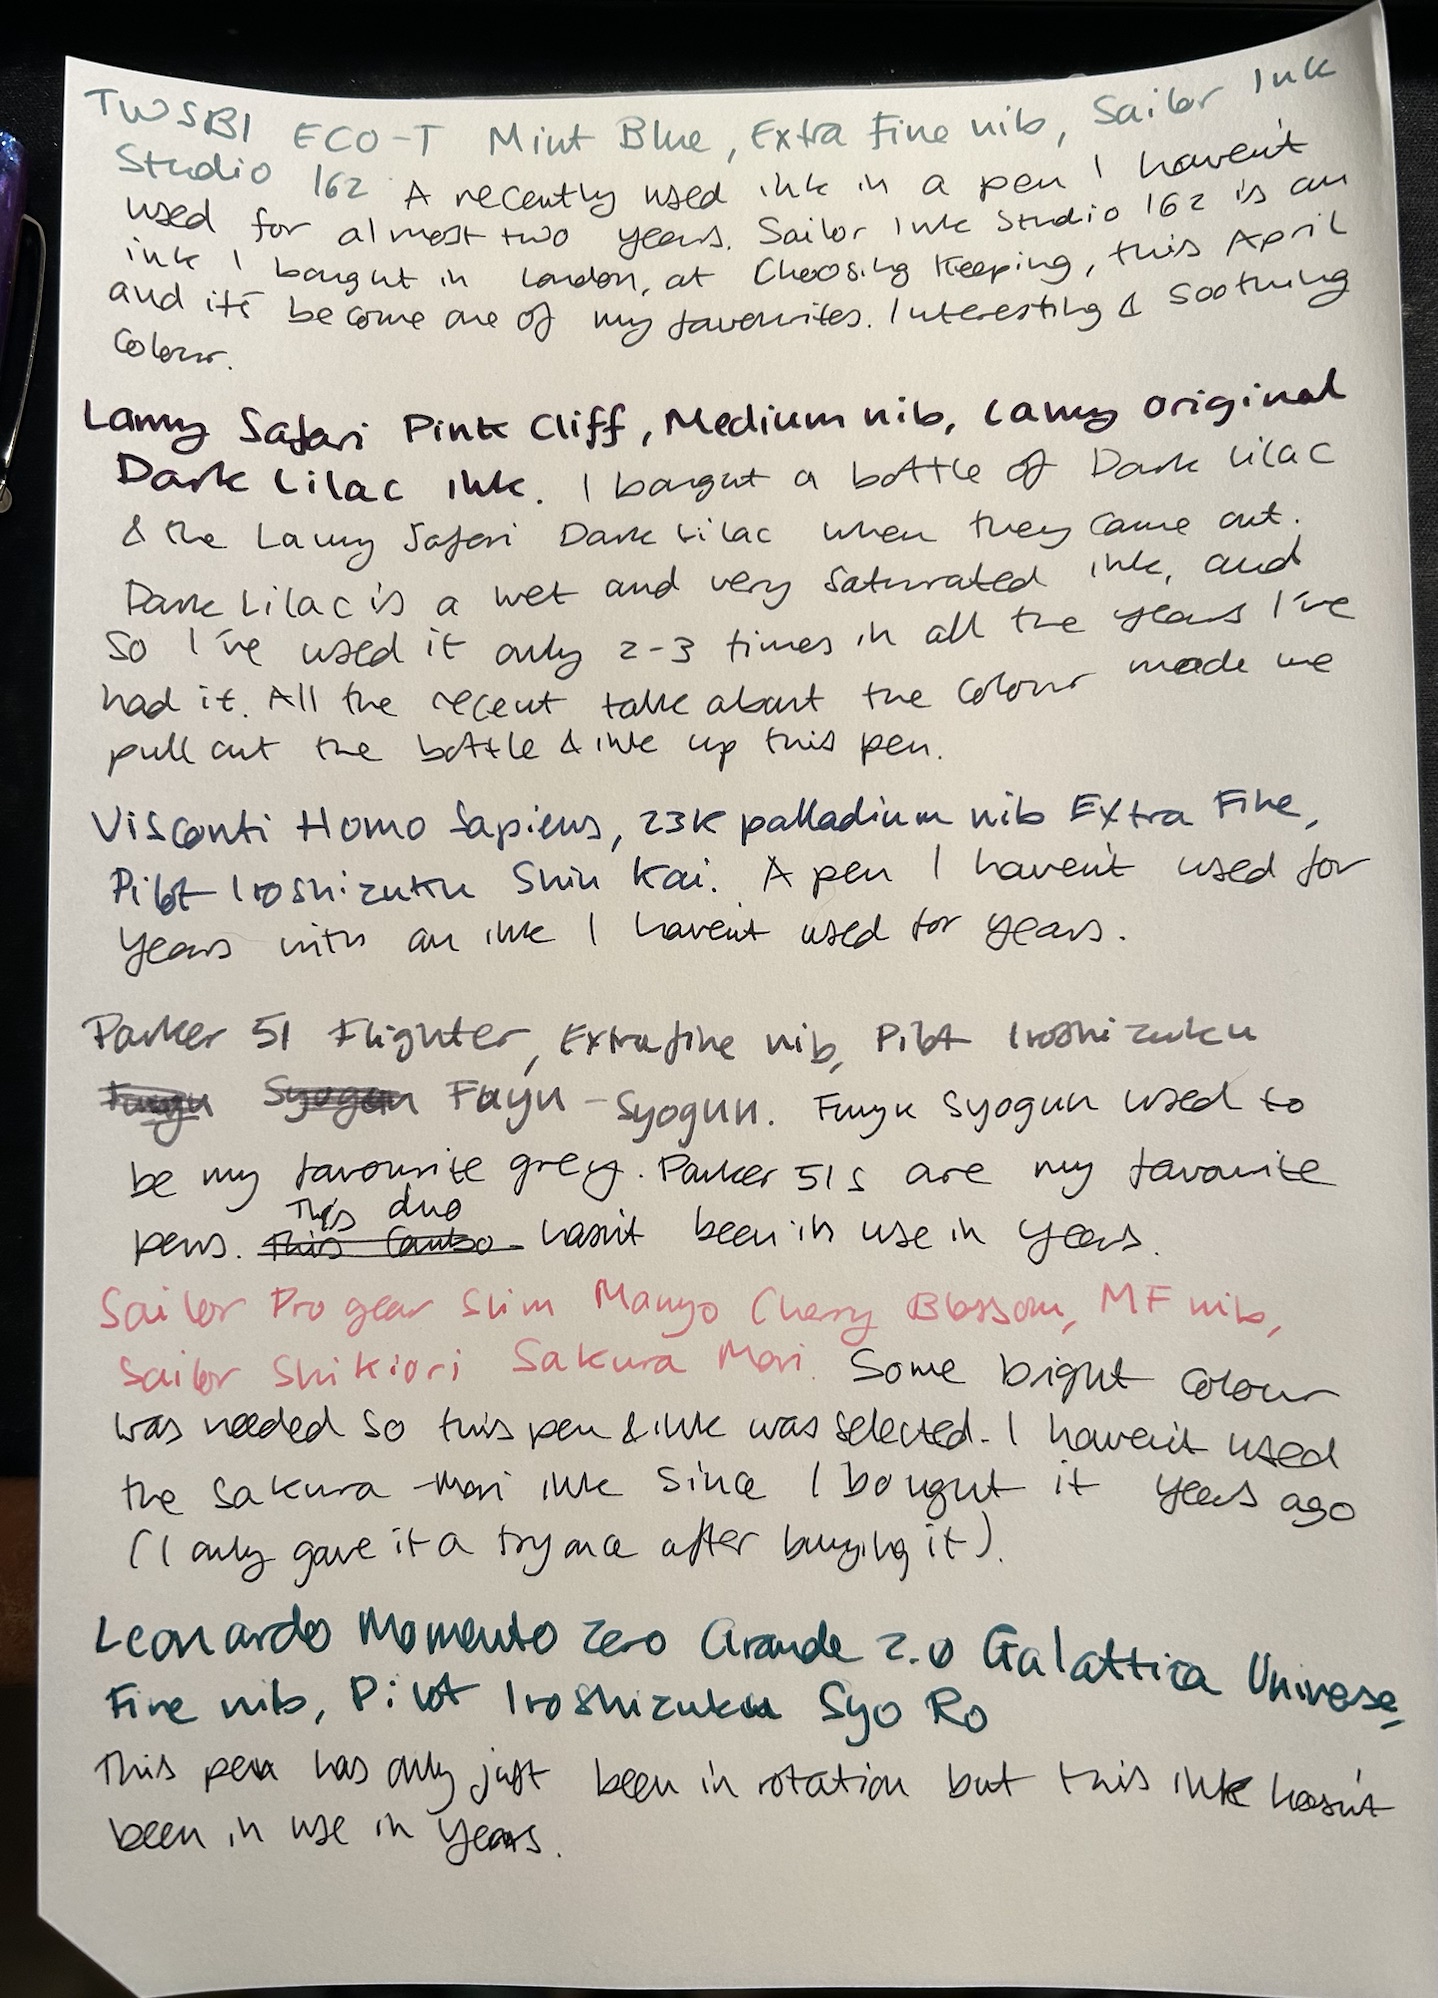 TWSBI ECO-T Mint Blue, Extra Fine nib, Sailor Ink
Studio 162 A recently used ink in a pen I haven't
used for almost two years. Sailor Ink Studio 162 is an
ink I bought in London, at Choosing Keeping, this April
and it's become one of my favourites. Interesting & soothing
colour.
Lamy Safari Pink Cliff, Medium nib, Lamy original
Dark Lilac ink. I bought a bottle of Dark Lilac
& the Lamy Safari Dark Lilac when they came out.
Dark Lilac is a wet and very saturated ink, and
so I've used it only 2-3 times in all the years I've
had it. All the recent talk about the colour made me
pull out the bottle & ink up this pen.
Visconti Homo Sapiens, 23K palladium nib Extra Fine,
Pilot Iroshizuku Shin Kai. A pen I haven't used for
years with an ink I haven't used for years.
Parker 51 Flighter, Extra fine nib, Pilot Iroshizuku
Fuyu Syogun Fuyu-Syogun. Fuyu Syogun used to
be my favourite grey. Parker 51s are my favourite
This duo
pens. This Combo hasn't been in use in years.
Sailor Pro gear Slim Manyo Cherry Blossom, MF nib,
Sailor Shikiori Sakura Mori. Some bright colour
was needed so this pen & ink was selected. I haven't used
the Sakura Mori ink since I bought it years ago
(I only gave it a try once after buying it).
Leonardo Momento Zero Grande 2.0 Galattica Universe,
Fine nib, Pilot Iroshizuku Syo Ro
This pen has only just been in rotation but this ink hasn't
been in use in years.